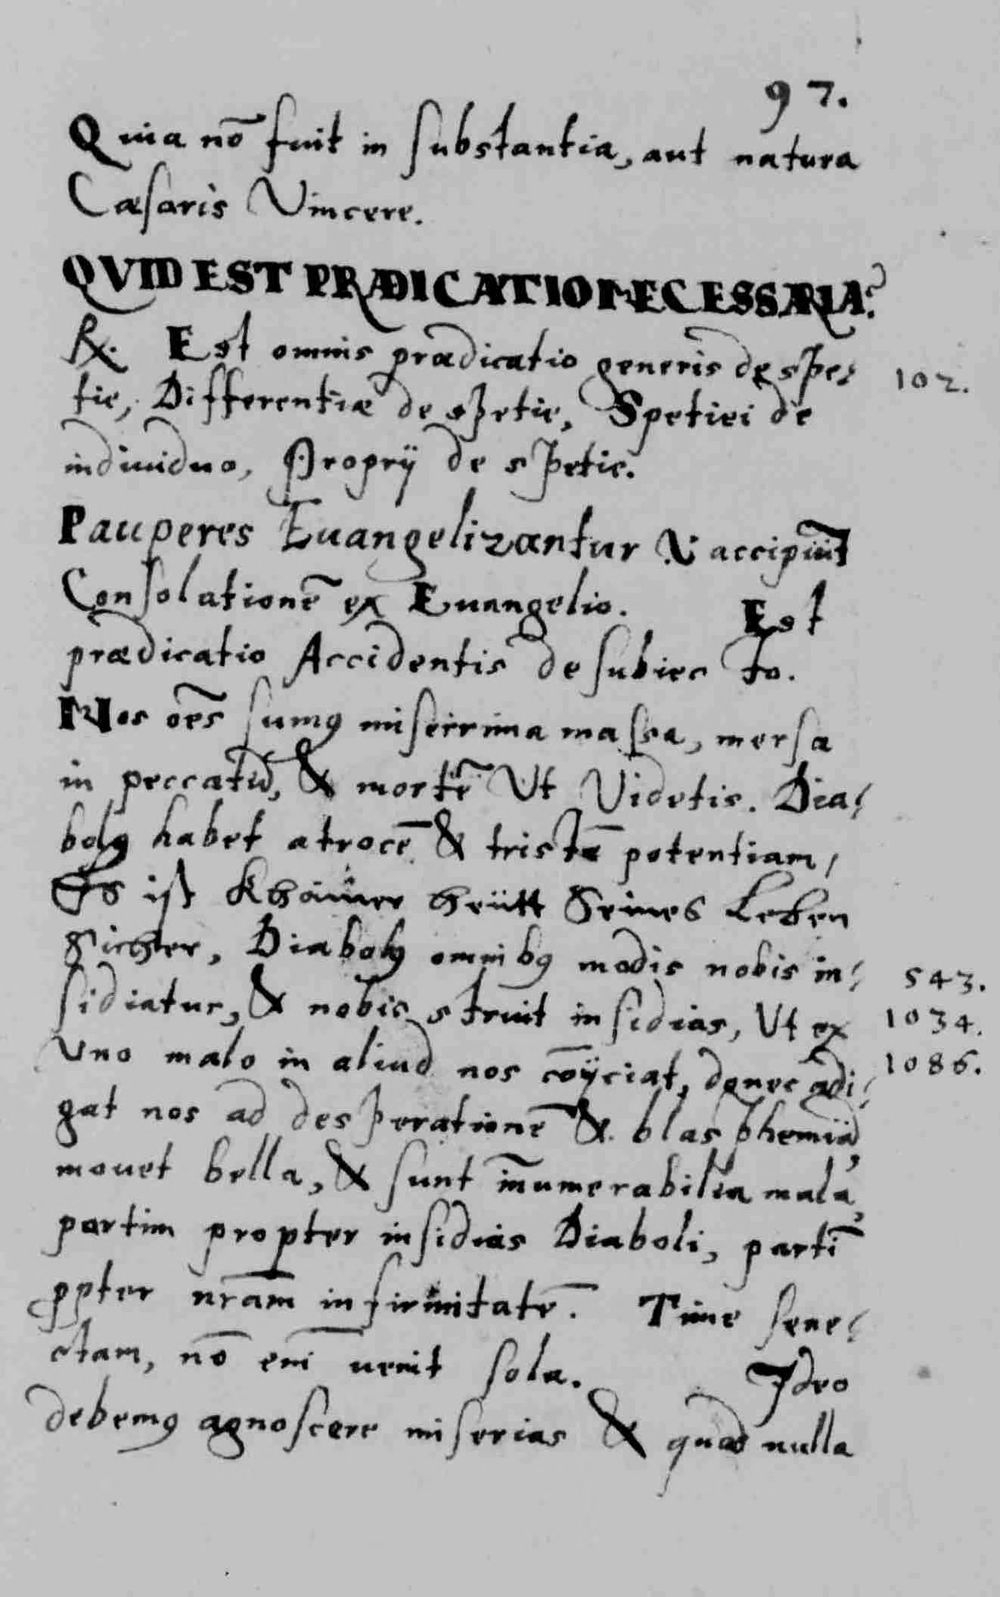 97.
Quia nō fuit in substantia, aut natura
Cæsaris Vincere.
QVID EST PRÆDICATIO NECESSARIA?
℞. Est omnis prædicatio generis de spe⸗ 102.
tie, Differentiæ de spetie, Spetiei de
indiuiduo, Proprij de spetie.
Pauperes Euangelizantur .i. accipiūt
Consolationē ex Euangelio. Est
prædicatio Accidentis de subiecto.
Nos oēs sumꝰ miserrima massa, mersa
in peccatū, & mortē Vt Videtis. Dia⸗
bolꝰ habet atrocē & tristē potentiam,
Es ist Khainer heütt Seines Leben
Sicher, Diabolꝰ omnibꝰ modis nobis in⸗ 543.
sidiatur, & nobis struit insidias, Vt ex 1034.
Vno malo in aliud nos cōijciat, donec adi⸗ 1086.
gat nos ad desperationē & blasphemiā,
mouet bella, & sunt īnumerabilia mala,
partim propter insidias Diaboli, partī
ꝓpter nrām infirmitatē. Time sene⸗
ctam, nō enī uenit sola. Ideo
debemꝰ agnoscere miserias & quod nulla